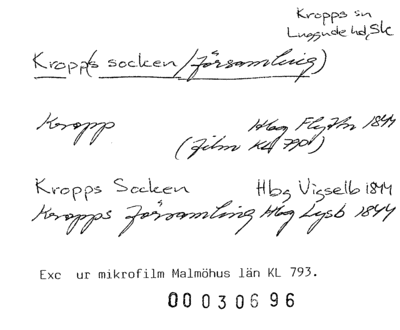 Kropps sn
Luggude hd, Sk
Kropps socken/församling)
Kropp Hbg Flyttn 1844
(film KL 790)
Kropps Socken Hbg Vigselb 1844
Kropps Församling Hbg Lysb 1844
Exc ur mikrofilm Malmöhus län KL 793.
00030696